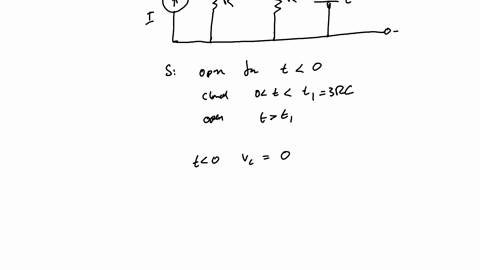 I R R C
S: open for t < 0
closed 0 < t < t₁ = 3RC
open t > t₁
t < 0 v_c = 0